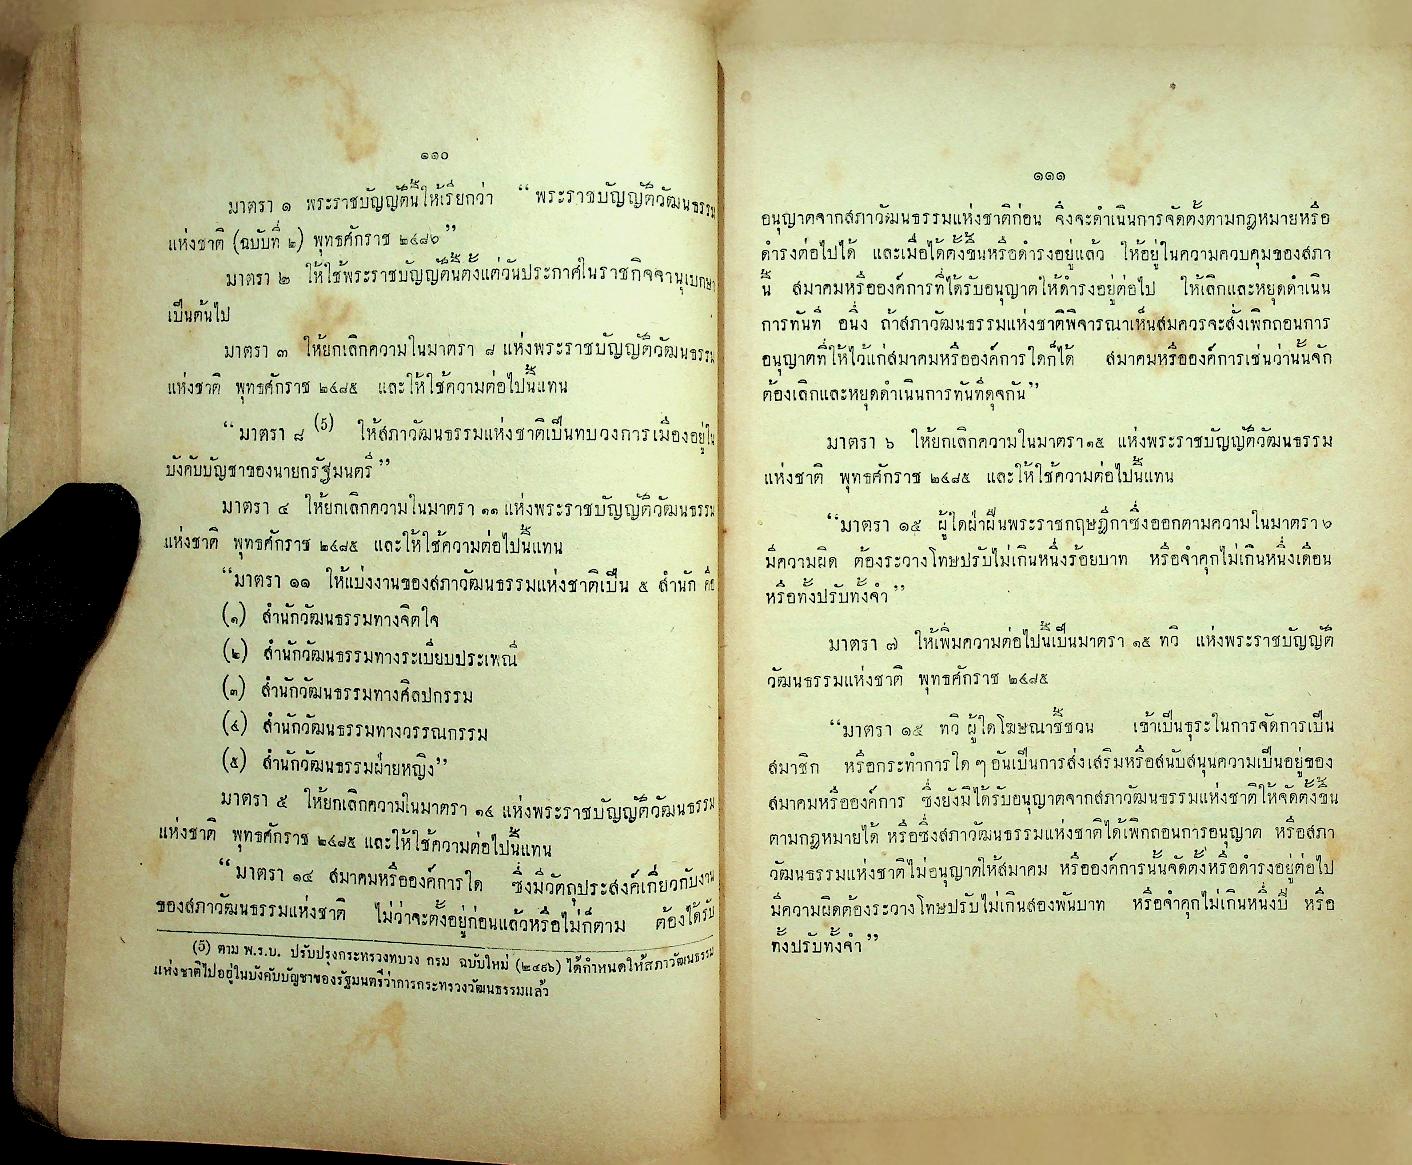 ๑๑๐
มาตรา ๑ พระราชบัญญัตินี้ให้เรียกว่า “ พระราชบัญญัติวัฒนธรรม
แห่งชาติ (ฉบับที่ ๒) พุทธศักราช ๒๔๘๖ ”
มาตรา ๒ ให้ใช้พระราชบัญญัตินี้ตั้งแต่วันประกาศในราชกิจจานุเบกษา
เป็นต้นไป
มาตรา ๓ ให้ยกเลิกความในมาตรา ๘ แห่งพระราชบัญญัติวัฒนธรรม
แห่งชาติ พุทธศักราช ๒๔๘๕ และให้ใช้ความต่อไปนี้แทน
“ มาตรา ๘ (5) ให้สภาวัฒนธรรมแห่งชาติเป็นทบวงการเมืองอยู่ใน
บังคับบัญชาของนายกรัฐมนตรี ”
มาตรา ๔ ให้ยกเลิกความในมาตรา ๑๑ แห่งพระราชบัญญัติวัฒนธรรม
แห่งชาติ พุทธศักราช ๒๔๘๕ และให้ใช้ความต่อไปนี้แทน
“มาตรา ๑๑ ให้แบ่งงานของสภาวัฒนธรรมแห่งชาติเป็น ๕ สำนัก คือ
(๑) สำนักวัฒนธรรมทางจิตใจ
(๒) สำนักวัฒนธรรมทางระเบียบประเพณี
(๓) สำนักวัฒนธรรมทางศิลปกรรม
(๔) สำนักวัฒนธรรมทางวรรณกรรม
(๕) สำนักวัฒนธรรมฝ่ายหญิง”
มาตรา ๕ ให้ยกเลิกความในมาตรา ๑๔ แห่งพระราชบัญญัติวัฒนธรรม
แห่งชาติ พุทธศักราช ๒๔๘๕ และให้ใช้ความต่อไปนี้แทน
“มาตรา ๑๔ สมาคมหรือองค์การใด ซึ่งมีวัตถุประสงค์เกี่ยวกับงาน
ของสภาวัฒนธรรมแห่งชาติ ไม่ว่าจะตั้งอยู่ก่อนแล้วหรือไม่ก็ตาม ต้องได้รับ
(5) ตาม พ.ร.บ. ปรับปรุงกระทรวงทบวง กรม ฉบับใหม่ (๒๔๙๖) ได้กำหนดให้สภาวัฒนธรรม
แห่งชาติไปอยู่ในบังคับบัญชาของรัฐมนตรีว่าการกระทรวงวัฒนธรรมแล้ว
๑๑๑
อนุญาตจากสภาวัฒนธรรมแห่งชาติก่อน จึงจะดำเนินการจัดตั้งตามกฎหมายหรือ
ดำรงต่อไปได้ และเมื่อได้ตั้งขึ้นหรือดำรงอยู่แล้ว ให้อยู่ในความควบคุมของสภา
นี้ สมาคมหรือองค์การที่ได้รับอนุญาตให้ดำรงอยู่ต่อไป ให้เลิกและหยุดดำเนิน
การทันที อนึ่ง ถ้าสภาวัฒนธรรมแห่งชาติพิจารณาเห็นสมควรจะสั่งเพิกถอนการ
อนุญาตที่ให้ไว้แก่สมาคมหรือองค์การใดก็ได้ สมาคมหรือองค์การเช่นว่านั้นจัก
ต้องเลิกและหยุดดำเนินการทันทีดุจกัน”
มาตรา ๖ ให้ยกเลิกความในมาตรา ๑๕ แห่งพระราชบัญญัติวัฒนธรรม
แห่งชาติ พุทธศักราช ๒๔๘๕ และให้ใช้ความต่อไปนี้แทน
“มาตรา ๑๕ ผู้ใดฝ่าฝืนพระราชกฤษฎีกาซึ่งออกตามความในมาตรา ๖
มีความผิด ต้องระวางโทษปรับไม่เกินหนึ่งร้อยบาท หรือจำคุกไม่เกินหนึ่งเดือน
หรือทั้งปรับทั้งจำ ”
มาตรา ๗ ให้เพิ่มความต่อไปนี้เป็นมาตรา ๑๕ ทวิ แห่งพระราชบัญญัติ
วัฒนธรรมแห่งชาติ พุทธศักราช ๒๔๘๕
“มาตรา ๑๕ ทวิ ผู้ใดโฆษณาชี้ชวน เข้าเป็นธุระในการจัดการเป็น
สมาชิก หรือกระทำการใด ๆ อันเป็นการส่งเสริมหรือสนับสนุนความเป็นอยู่ของ
สมาคมหรือองค์การ ซึ่งยังมิได้รับอนุญาตจากสภาวัฒนธรรมแห่งชาติให้จัดตั้งขึ้น
ตามกฎหมายได้ หรือซึ่งสภาวัฒนธรรมแห่งชาติได้เพิกถอนการอนุญาต หรือสภา
วัฒนธรรมแห่งชาติไม่อนุญาตให้สมาคม หรือองค์การนั้นจัดตั้งหรือดำรงอยู่ต่อไป
มีความผิดต้องระวางโทษปรับไม่เกินสองพันบาท หรือจำคุกไม่เกินหนึ่งปี หรือ
ทั้งปรับทั้งจำ ”